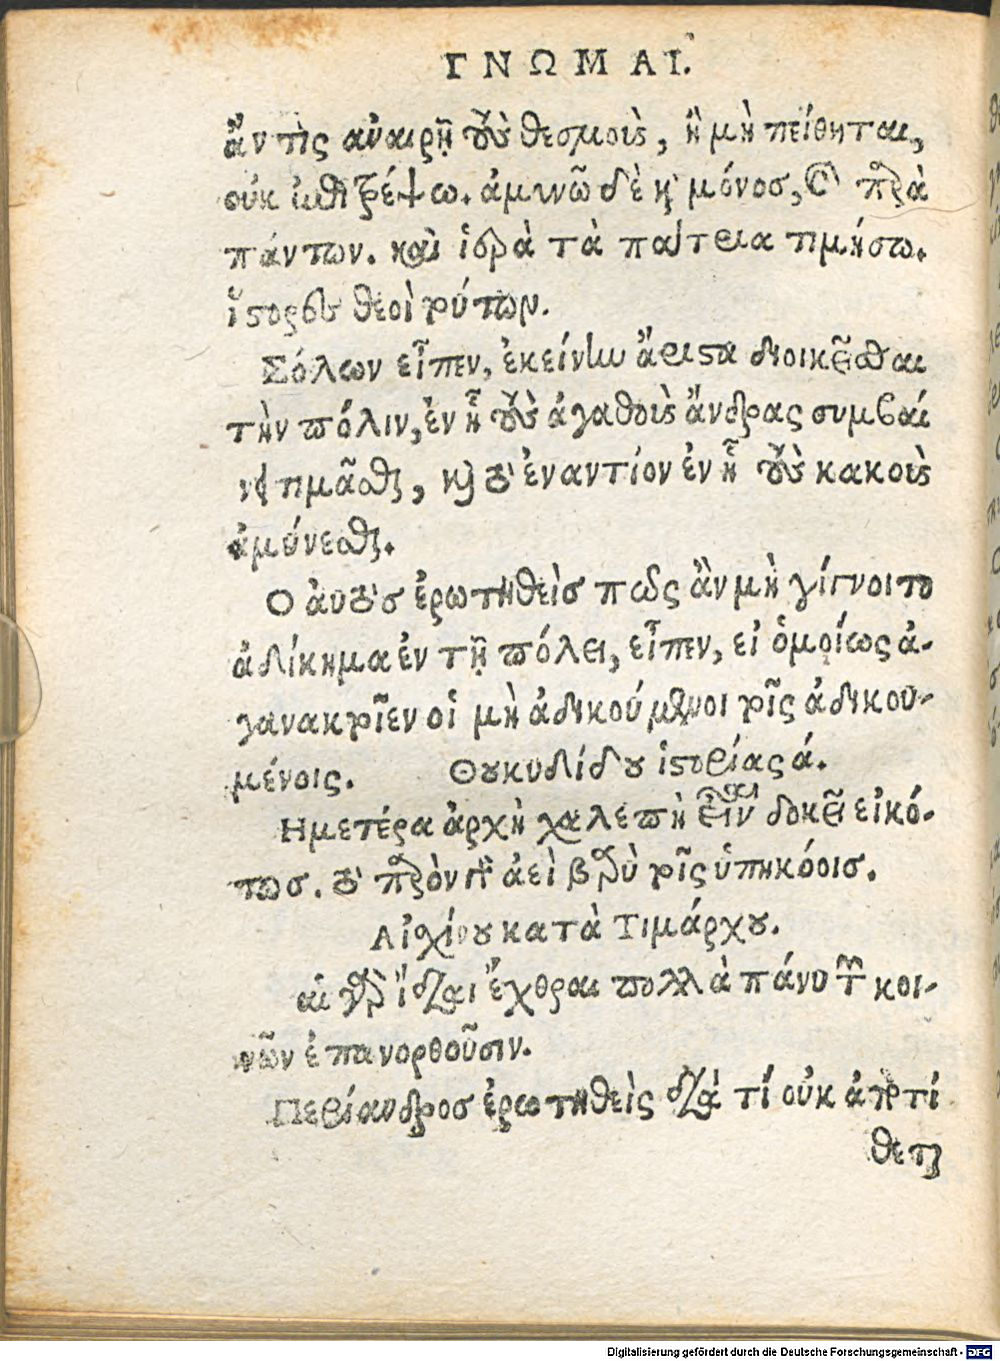 ΓΝΩΜΑΙ.
ἄν τὶς ἀναιρῇ τοὺς θεσμοὺς, ἢ μὴ πείθηται,
οὐκ ἐπιτρέψω. ἀμυνῶ δὲ καὶ μόνος, καὶ μετὰ
πάντων. καὶ ἱερὰ τὰ πάτρια τιμήσω.
ἵστορες θεοὶ τούτων.
Σόλων εἶπεν, ἐκείνην ἄριστα διοικεῖσθαι
τὴν πόλιν, ἐν ᾗ τοὺς ἀγαθοὺς ἄνδρας συμβαί
νει τιμᾶσθαι, καὶ τοὐναντίον ἐν ᾗ τοὺς κακοὺς
ἀμύνεσθαι.
Ο αὐτὸς ἐρωτηθεὶς πῶς ἂν μὴ γίγνοιτο
ἀδίκημα ἐν τῇ πόλει, εἶπεν, εἰ ὁμοίως ἀ-
γανακτοῖεν οἱ μὴ ἀδικούμενοι τοῖς ἀδικου-
μένοις. Θουκυδίδου ἱστορίας ά.
Ημετέρα ἀρχὴ χαλεπὴ εἶναι δοκεῖ εἰκό-
τως. τὸ παρὸν γὰρ ἀεὶ βαρὺ τοῖς ὑπηκόοις.
Αἰσχίνου κατὰ Τιμάρχου.
αἱ γὰρ ἴδιαι ἔχθραι πολλὰ πάνυ τῶν κοι-
νῶν ἐπανορθοῦσιν.
Περίανδρος ἐρωτηθεὶς διὰ τί οὐκ ἀποτί
θεται